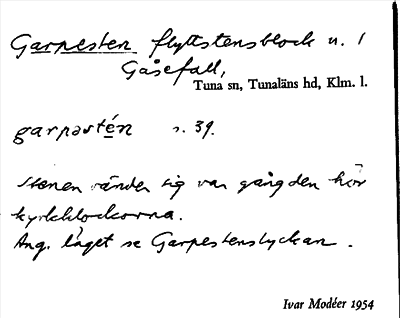 Garpesten flyttstensblock n. 1
Gåsefall,
Tuna sn, Tunaläns hd, Klm. l.
garpəstén s. 39.
Stenen vänder sig var gång den hör
kyrkklockorna.
Ang. läget se Garpestenslyckan.
Ivar Modéer 1954